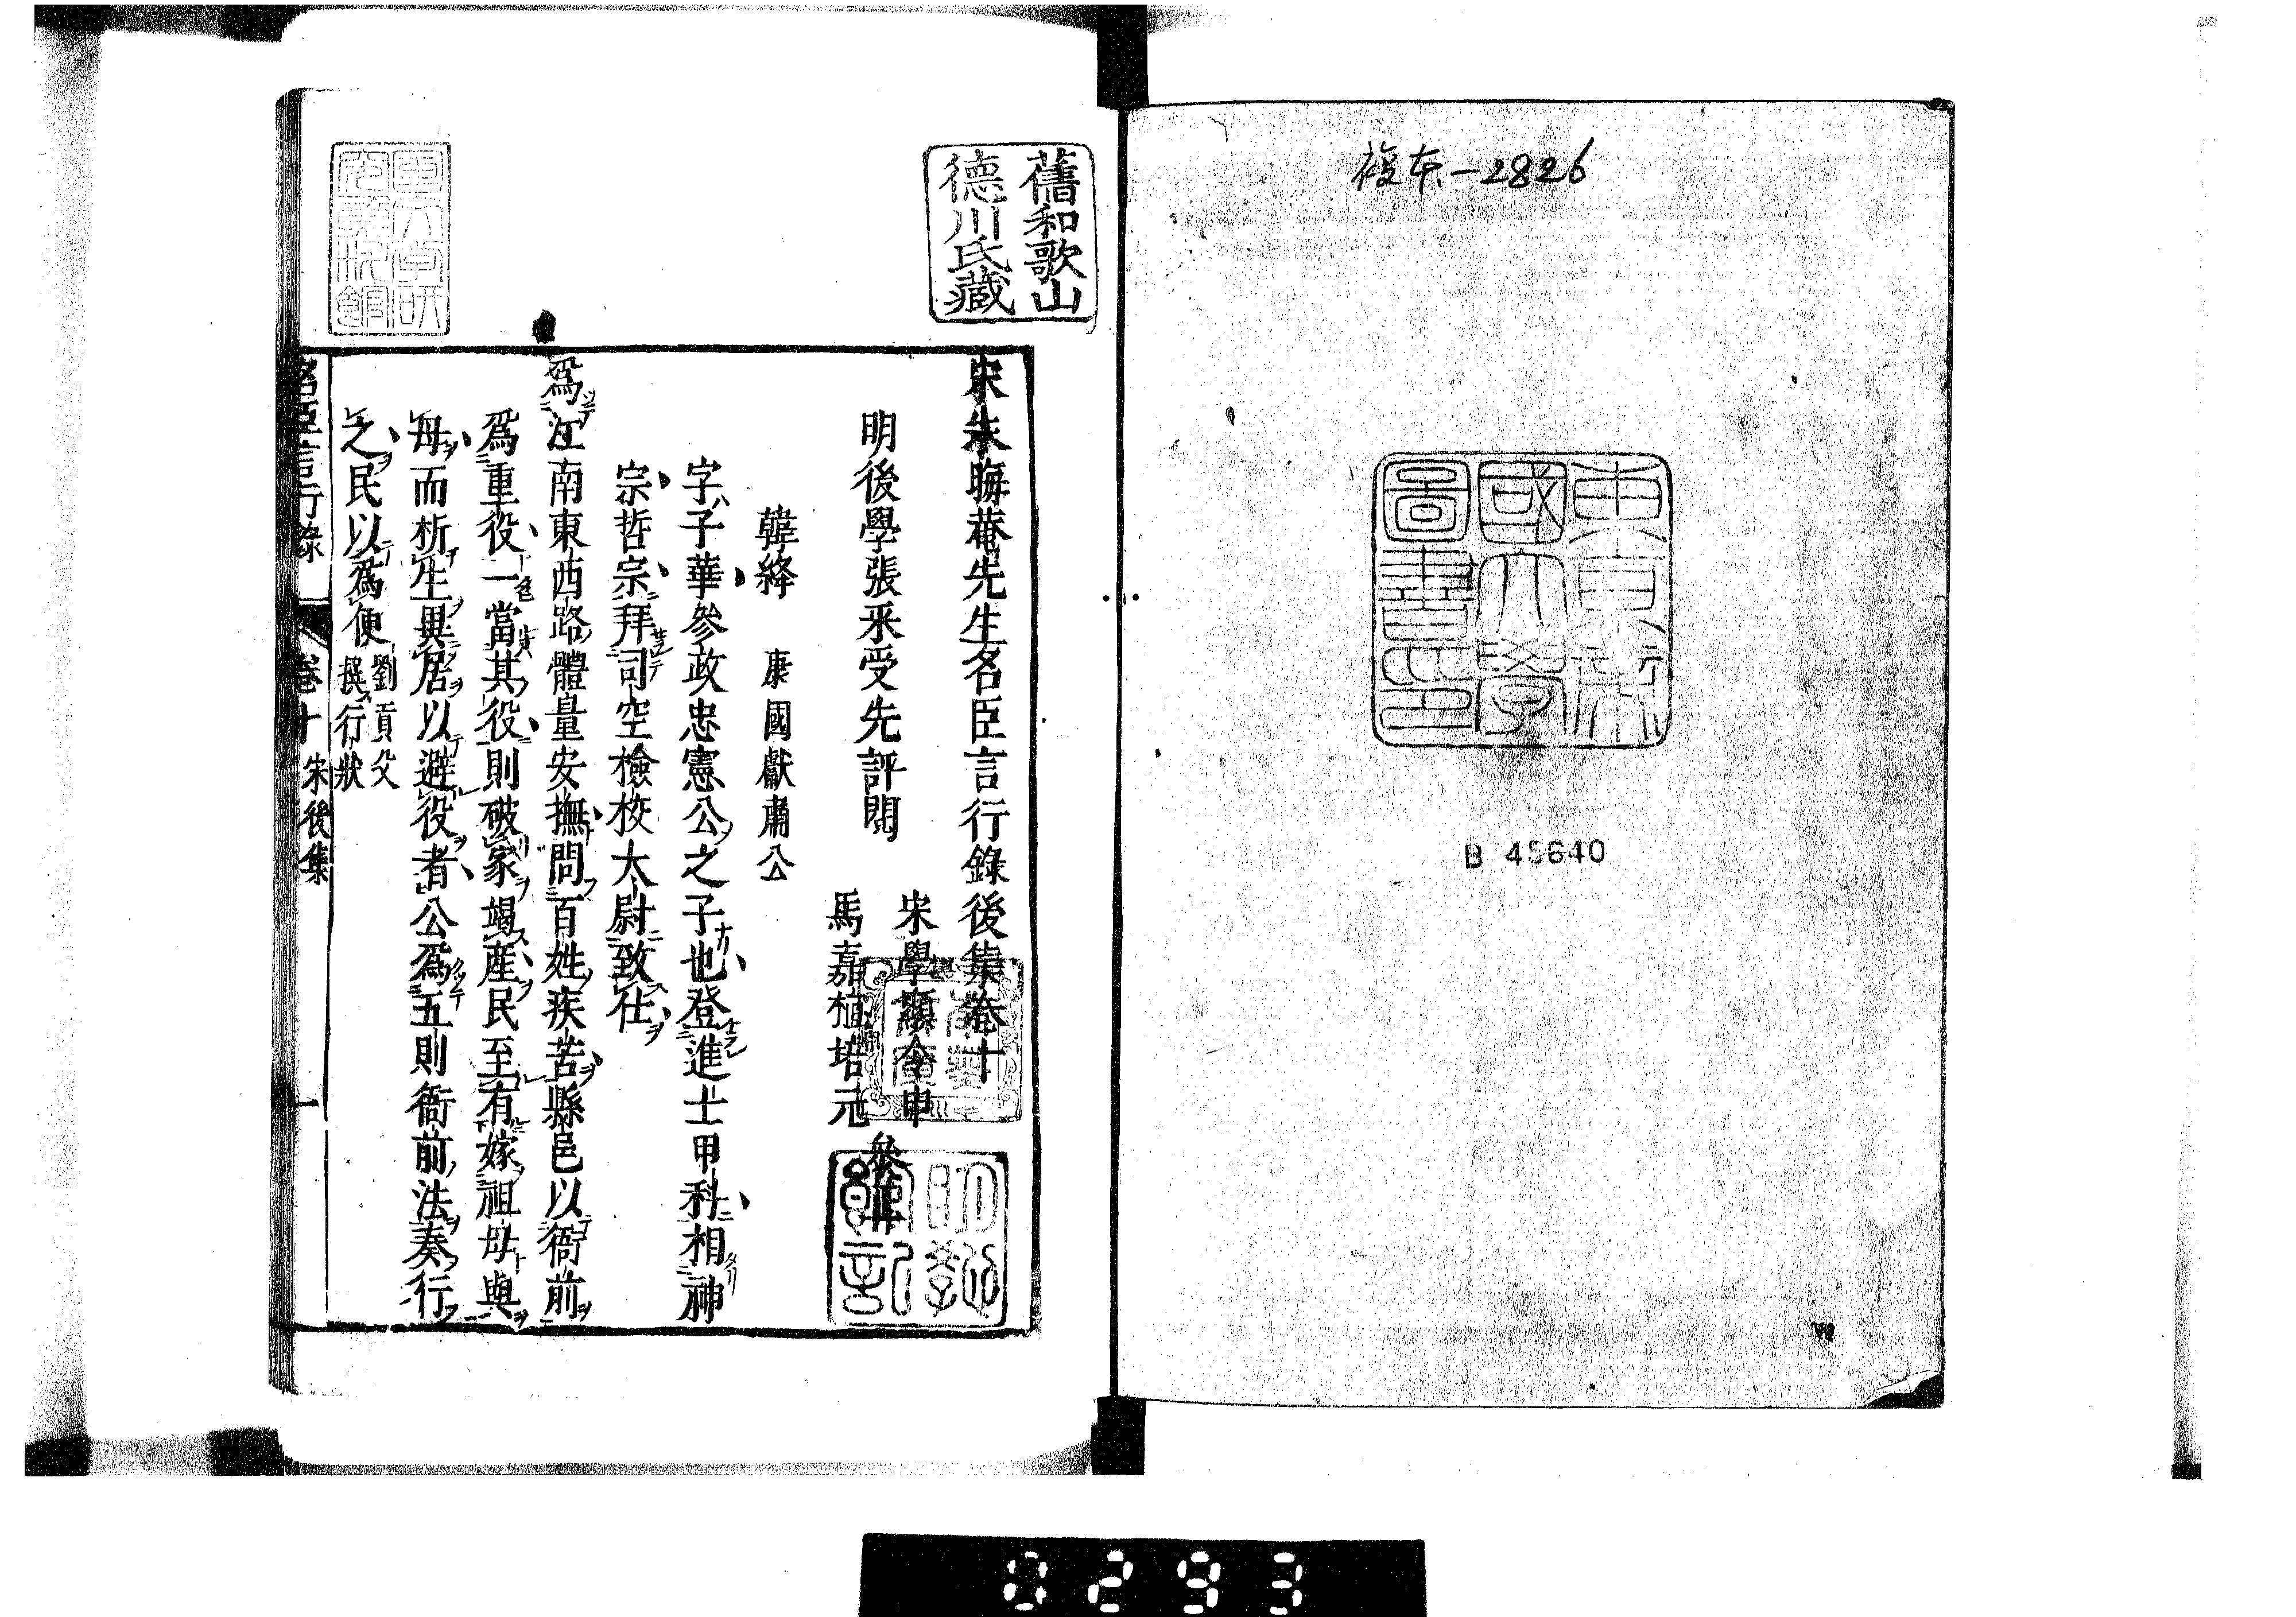 複本-2826
東京帝
國大學
圖書印
B 45640
舊和歌山
德川氏藏
宋朱晦菴先生名臣言行錄後集卷十
明後學張采受先評閱
宋學顯令申
馬嘉植培元
參正
韓絳 康國獻肅公
字子華參政忠憲公之子也登進士甲科相神
宗哲宗拜司空檢校太尉致仕
爲江南東西路體量安撫問百姓疾苦縣邑以衙前
爲重役一當其役則破家竭產民至有嫁祖母與
母而析生異居以避役者公爲五則衙前法奏行
之民以爲便
劉貢父
撰行狀
名臣言行錄 卷十 宋後集 一
0293